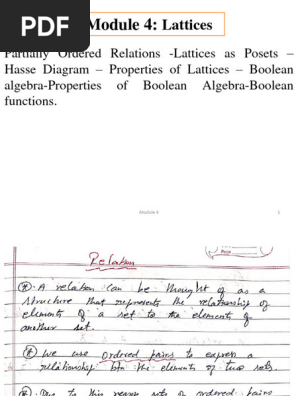 PDF
Module 4: Lattices
Partially Ordered Relations -Lattices as Posets –
Hasse Diagram – Properties of Lattices – Boolean
algebra-Properties of Boolean Algebra-Boolean
functions.
Module 4
1
Relation
A relation can be thought of as a
structure that represents the relationship of
elements of a set to the elements of
another set.
We use ordered pairs to express a
relationship btn the elements of two sets.
Due to this reason sets of ordered pairs